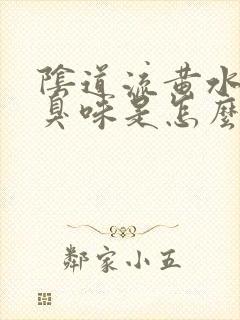 陰道流黃水
臭味是怎麼
鄰家小五